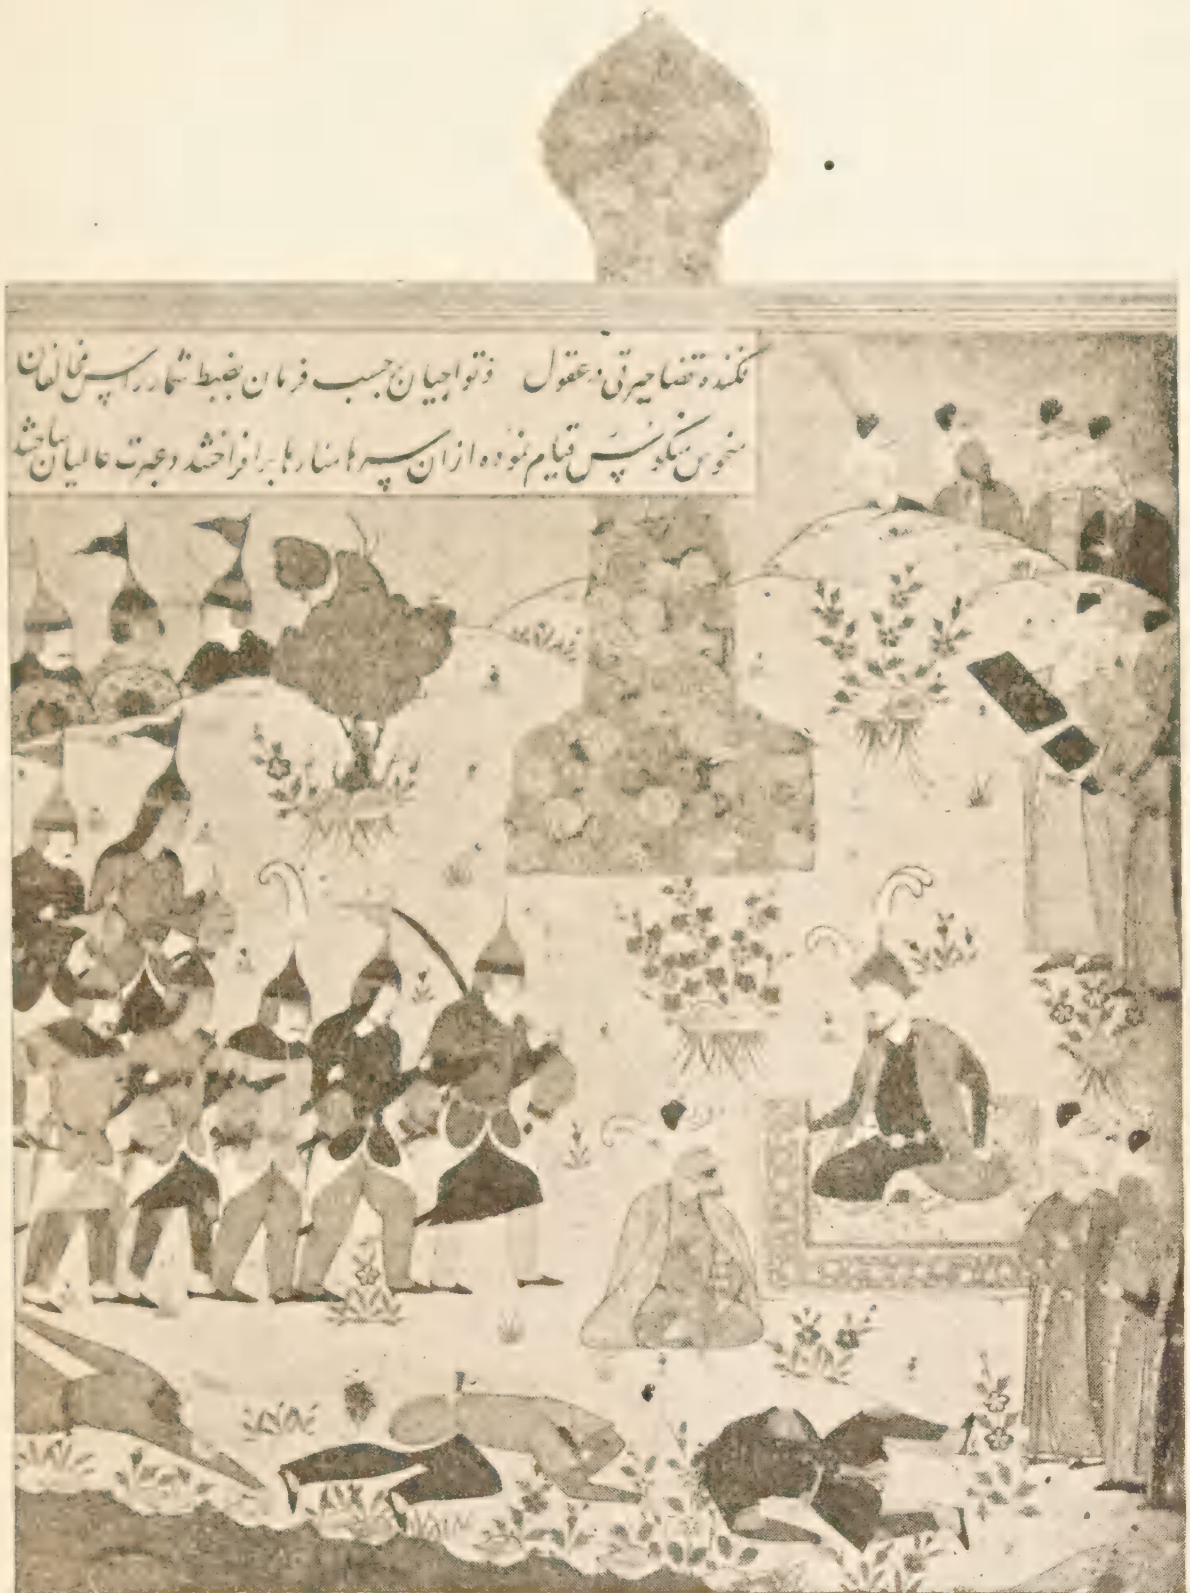 فکنده قضا حیرتی در عقول و تواجیان بر حسب فرمان بضبط شمار رؤس مخالفان
منحوس منکوس قیام نموده از ان سرها منارها برافراختند و عبرت عالمیان ساختند